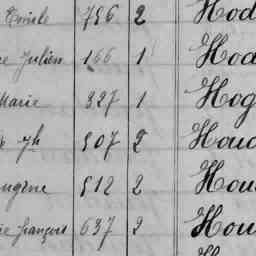 Emile 756 2 Hod
Julien 166 1 Hod
Marie 327 1 Hog
Jh 507 2 Houd
Eugène 512 2 Hou
françois 637 2 Hou